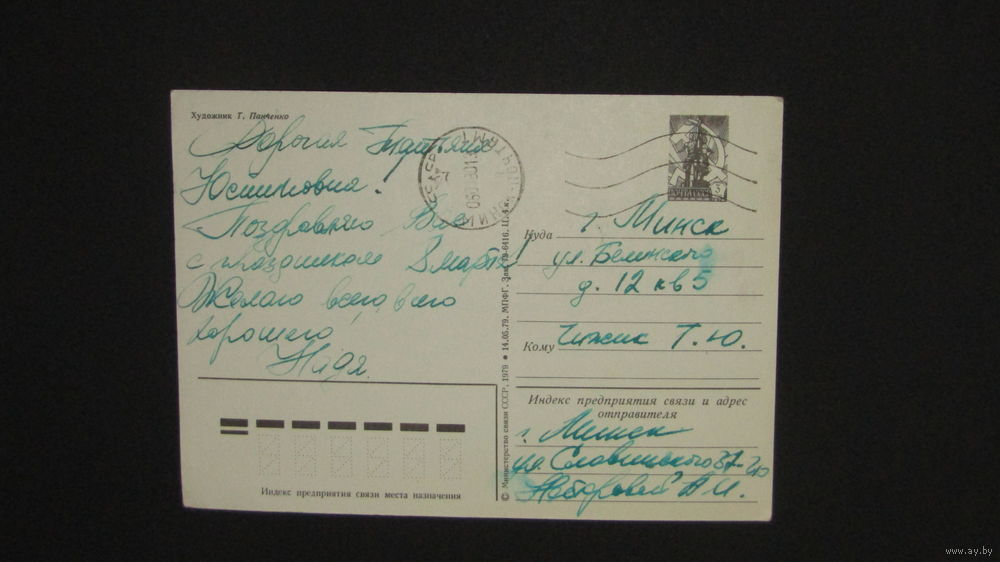 Художник Г. Панченко
Дорогая Татьяна
Юстиновна!
Поздравляю Вас
с праздником 8 марта!
Желаю всего, всего
хорошего!
Надя.
Куда г. Минск
ул. Белинского
д. 12 кв 5
Кому Чижик Т. Ю.
Индекс предприятия связи и адрес
отправителя
г. Минск
ул. Славинского 37-
Н. И.
Индекс предприятия связи места назначения
© Министерство связи СССР, 1979 ● 14.05.79. МПФГ. Зак. 79-6416. Ц. 4 к.
ПОЧТА СССР
3
www.ay.by